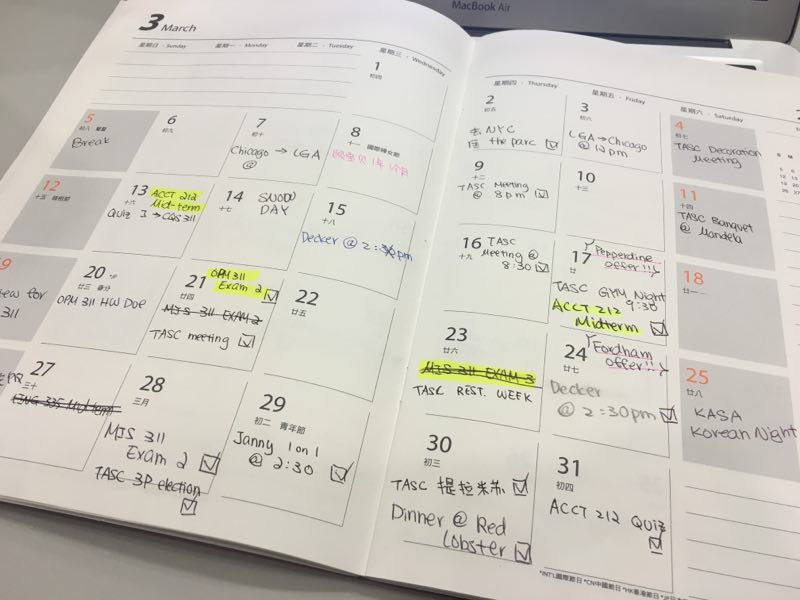 MacBook Air
3 March
星期日・Sunday
星期一・Monday
星期二・Tuesday
星期三・Wednesday
1
初四
5
初八
Break
6
初九
7
初十
Chicago → LGA
@
8
十一 國際婦女節
12
十五
13
十六
ACCT 212
Mid-term
QUIZ I → CGS 311
14
十七
SNOW
DAY
15
十八
Decker @ 2:30pm
9
ew for
311
20
廿三 春分
OPM 311 HW Due
21
廿四
OPM 311
Exam 2
MIS 311 EXAM 2
TASC meeting
22
廿五
27
三十
28
三月
MIS 311
Exam 2
TASC 3P election
29
初二 青年節
Janny 1 on 1
@ 2:30
星期四・Thursday
星期五・Friday
星期六・Saturday
2
初五
去 NYC
the parc
3
初六
LGA → Chicago
@ 12pm
4
初七
TASC Decoration
Meeting
9
十二
TASC Meeting
@ 8pm
10
十三
11
十四
TASC Banquet
@ Mandela
16
十九
TASC
Meeting @
8:30
17
廿
Pepperdine
offer!!
TASC GYM Night
9:30
ACCT 212
Midterm
18
廿一
23
廿六
MIS 311 EXAM 3
TASC REST. WEEK
24
廿七
Fordham
offer!!
Decker
@ 2:30pm
25
廿八
KASA
Korean Night
30
初三
TASC 提拉米蘇
Dinner @ Red
Lobster
31
初四
ACCT 212 QUIZ
*INT'L國際節日 *CN中國節日 *HK香港節日